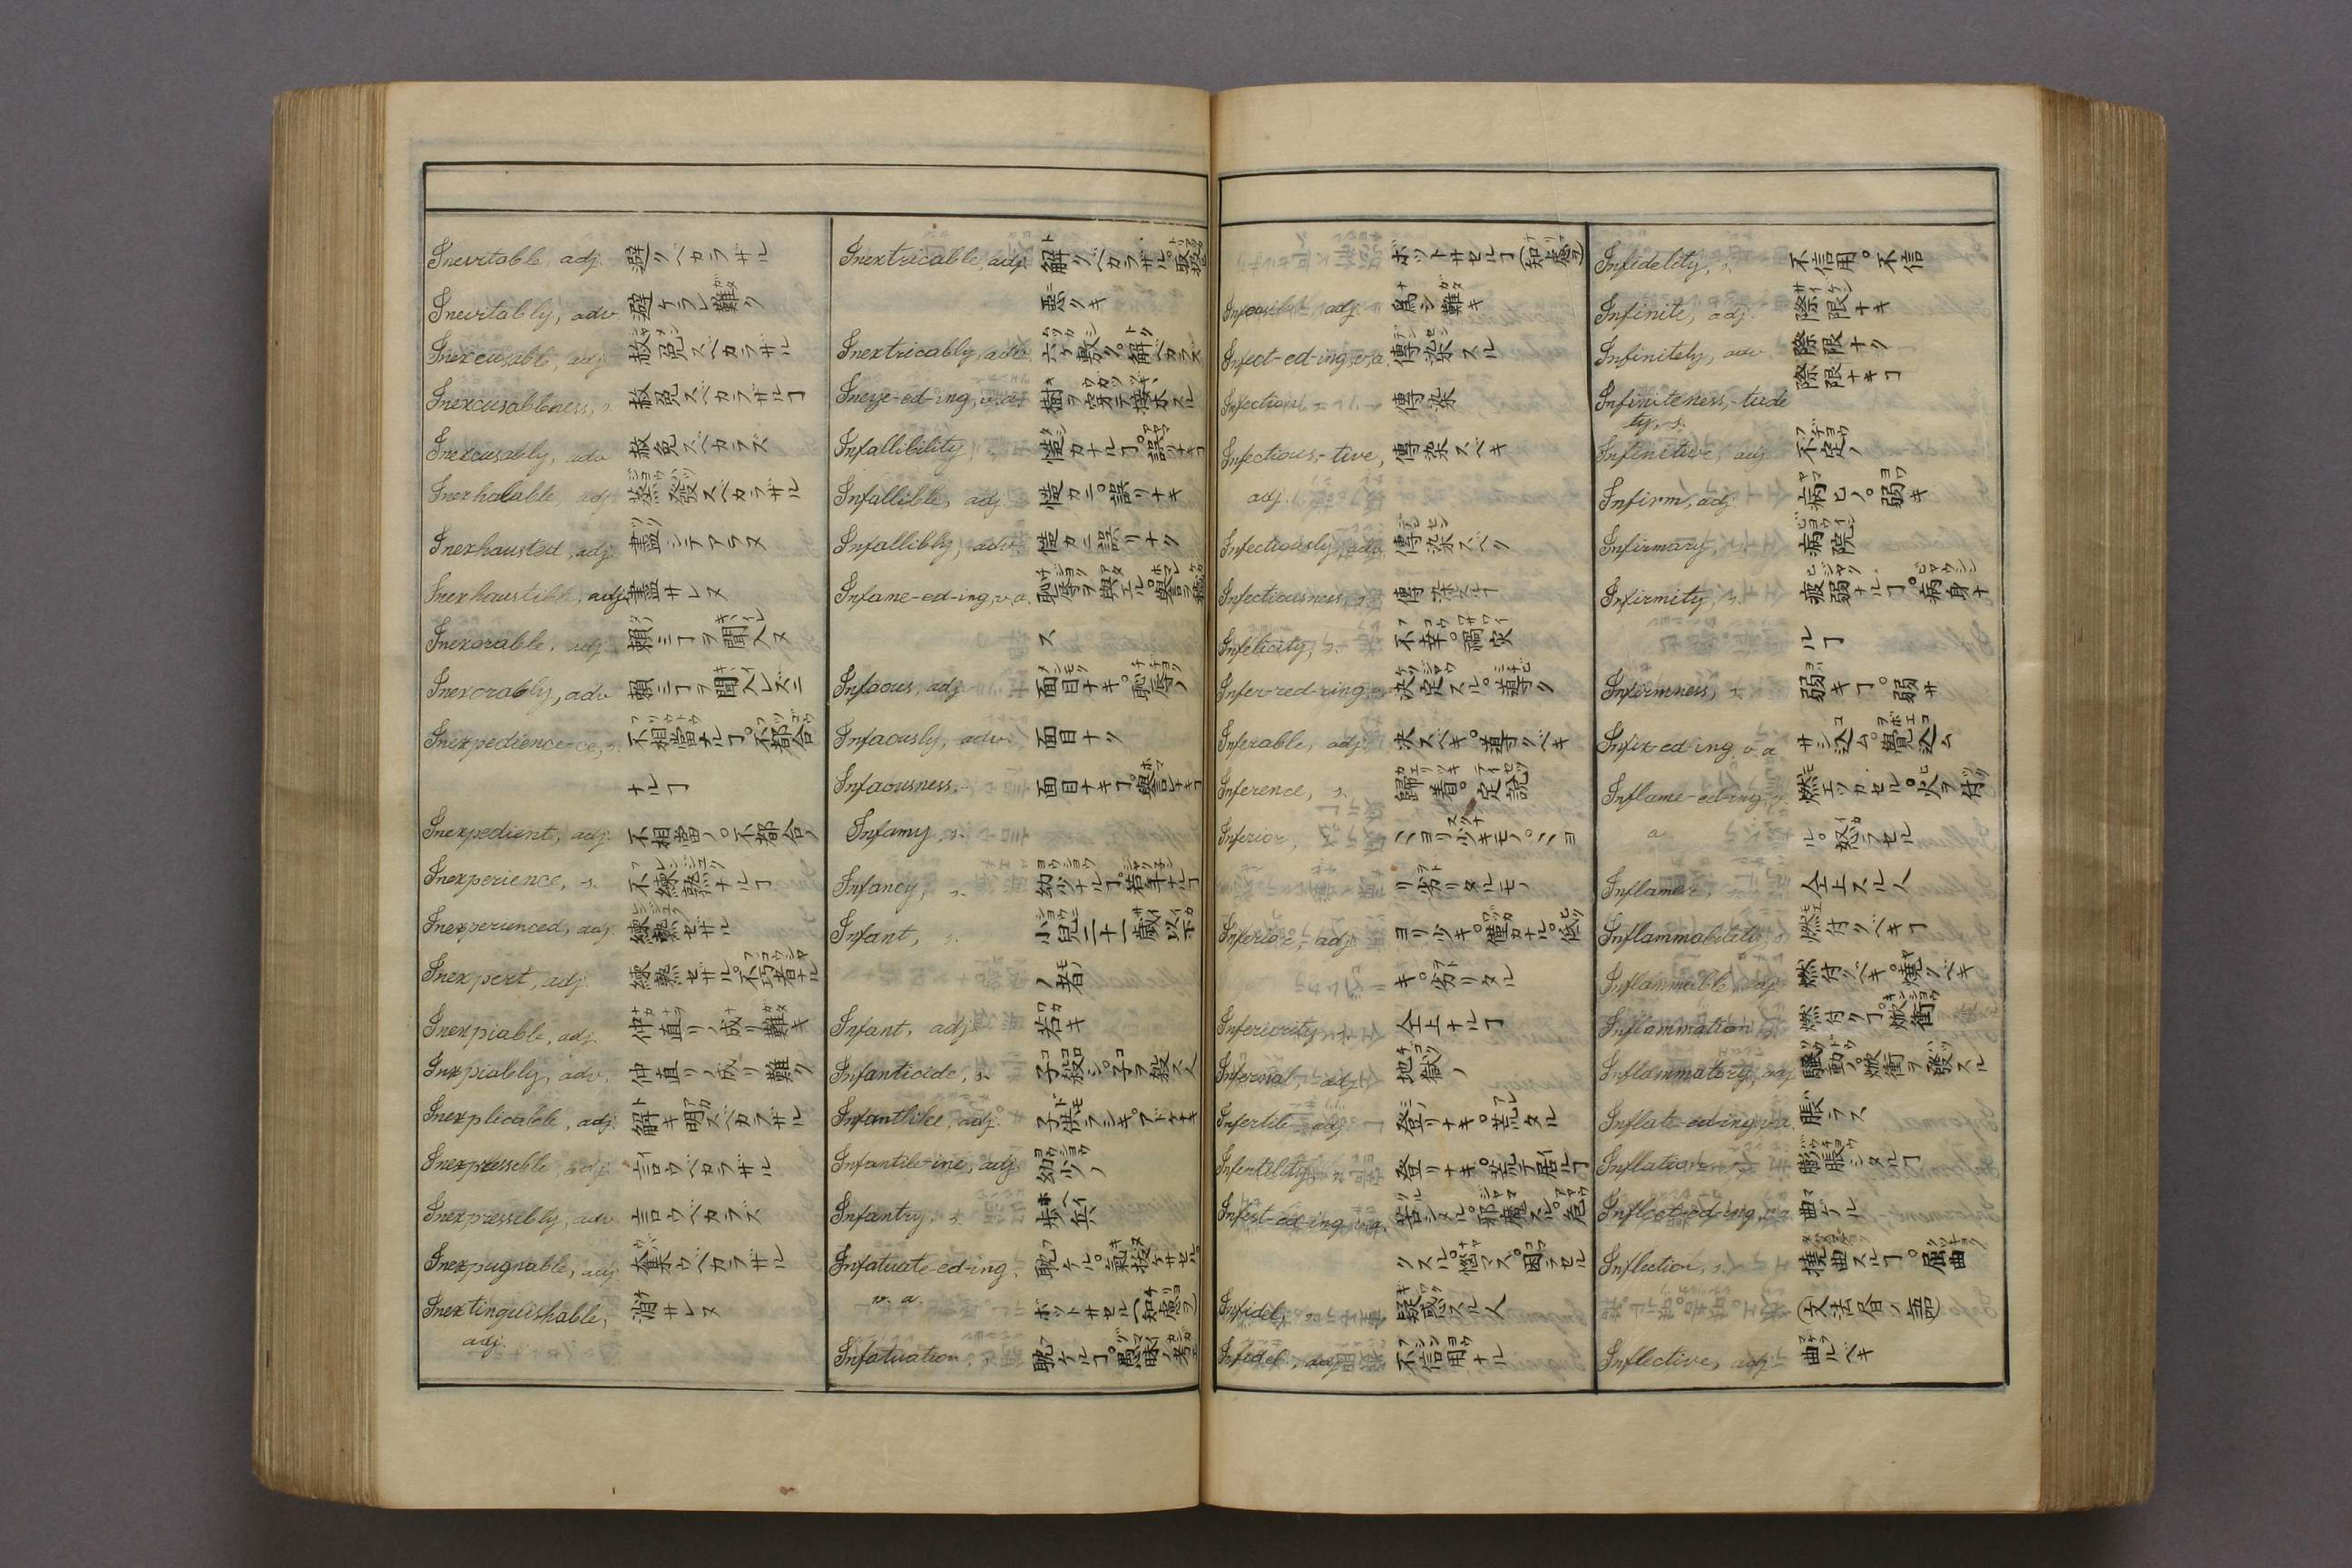 Inevitable, adj. 避クベカラザル
Inevitably, adv. 避ケラレ難ク
Inexcusable, adj. 赦免スベカラザル
Inexcusableness, s. 赦免スベカラザルヿ
Inexcusably, adv. 赦免スベカラズ
Inexhalable, adj. 蒸發スベカラザル
Inexhausted, adj. 盡シテアラヌ
Inexhaustible, adj. 盡サレヌ
Inexorable, adj. 頼ミヿヲ聞入レヌ
Inexorably, adv. 頼ミヿヲ聞入レズニ
Inexpedience-ce, s. 不相當ナルヿ。不都合
ナルヿ
Inexpedient, adj. 不相當ノ。不都合ノ
Inexperience, s. 不練熟ナルヿ
Inexperienced, adj. 練熟セザル
Inexpert, adj. 練熟セザル。不巧者ナル
Inexpiable, adj. 仲直リノ成リ難キ
Inexpiably, adv. 仲直リノ成リ難ク
Inexplicable, adj. 解キ明スベカラザル
Inexpressible, adj. 言ウベカラザル
Inexpressibly, adv. 言ウベカラズ
Inexpugnable, adj. 奪ウベカラザル
Inextinguishable, 消サレヌ
adj.
Inextricable, adj. 解クベカラザル。取扱
悪クキ
Inextricably, adv. 六ケ敷ク。解ベカラズ
Ineye-ed-ing, v.a. 樹ヲ穿テ接木スル
Infallibility 慥カナルヿ。誤リナキヿ
Infallible, adj. 慥カニ。誤リナキ
Infallibly, adv. 慥カニ誤リナク
Infame-ed-ing, v.a. 恥辱ヲ與エル。譽ヲ
ス
Infaous, adj. 面目ナキ。恥辱ノ
Infaously, adv. 面目ナク
Infaousness, 面目ナキヿ。譽レナキヿ
Infamy, s.
Infancy, s. 幼少ナルヿ。若年ナルヿ
Infant, s. 小兒二十一歳以下
ノ者
Infant, adj. 若キ
Infanticide, s. 子殺シ。子ヲ殺ス人
Infantlike, adj. 子供ラシキ。アドケナキ
Infantile-ine, adj. 幼少ノ
Infantry, s. 歩兵
Infatuate-ed-ing, 耽ケル。氣抜ケサセル。
v. a. ボットサセル(知慮ヲ)
Infatuation, s. 耽ケルヿ。愚昧ノ考エ
ボットサセルヿ(知慮ヲ)
adj. 爲シ難キ
Infect-ed-ing, v.a. 傳染スル
Infection 傳染
Infectious,-tive, 傳染スベキ
adj.
Infectiously, adv. 傳染スベク
Infectiousness, s. 傳染
Infelicity, s. 不幸。禍災
Infer-red-ring 決定スル。導ク
Inferable, adj. 决スベキ。導クベキ
Inference, s. 歸着。定説
Inferior, ヨリ少キモノ。ヨ
リ劣リタルモノ
Inferior, adj. ヨリ少キ。僅カナル。低
キ。劣リタル
Inferiority, s. 仝上ナルヿ
Infernal, adj. 地獄ノ
Infertile, adj. 登リナキ。荒レタル
Infertility, 登リナキ。荒テ居ルヿ
Infest-ed-ing, v.a. 害シタル。邪魔スル。危
クスル。惱マス。困ラセル
Infidel, 疑惑スル人
Infidel, adj. 不信用ナル
Infidelity, s. 不信用。不信
Infinite, adj. 際限ナキ
Infinitely, adv. 際限ナク
Infiniteness,-tude 際限ナキヿ
ty, s.
Infinitive, adj. 不定ノ
Infirm, adj. 病ヒノ。弱キ
Infirmary, s. 病院
Infirmity, s. 疲弱ナルヿ。病身ナ
ルヿ
Infirmness, s. 弱キヿ。弱サ
Infix-ed-ing v.a. サシ込ム。覺込ム
Inflame-ed-ing, 燃エツカセル。火ヲ付
a. ル。怒ラセル
Inflamer, s. 仝上スル人
Inflammability, s. 燃付クベキヿ
Inflammable, adj. 燃付クベキ。燒クベキ
Inflammation 燃付クヿ。焮衝
Inflammatory, adj. 騒動ノ。焮衝ヲ發スル
Inflate-ed-ing, v.a. 脹ラス
Inflation 膨脹シタルヿ
Inflect-ed-ing, v.a. 曲ゲル
Inflection, s. 撓曲スルヿ。屈曲
(文法家ノ語)
Inflective, adj. 曲ルベキ